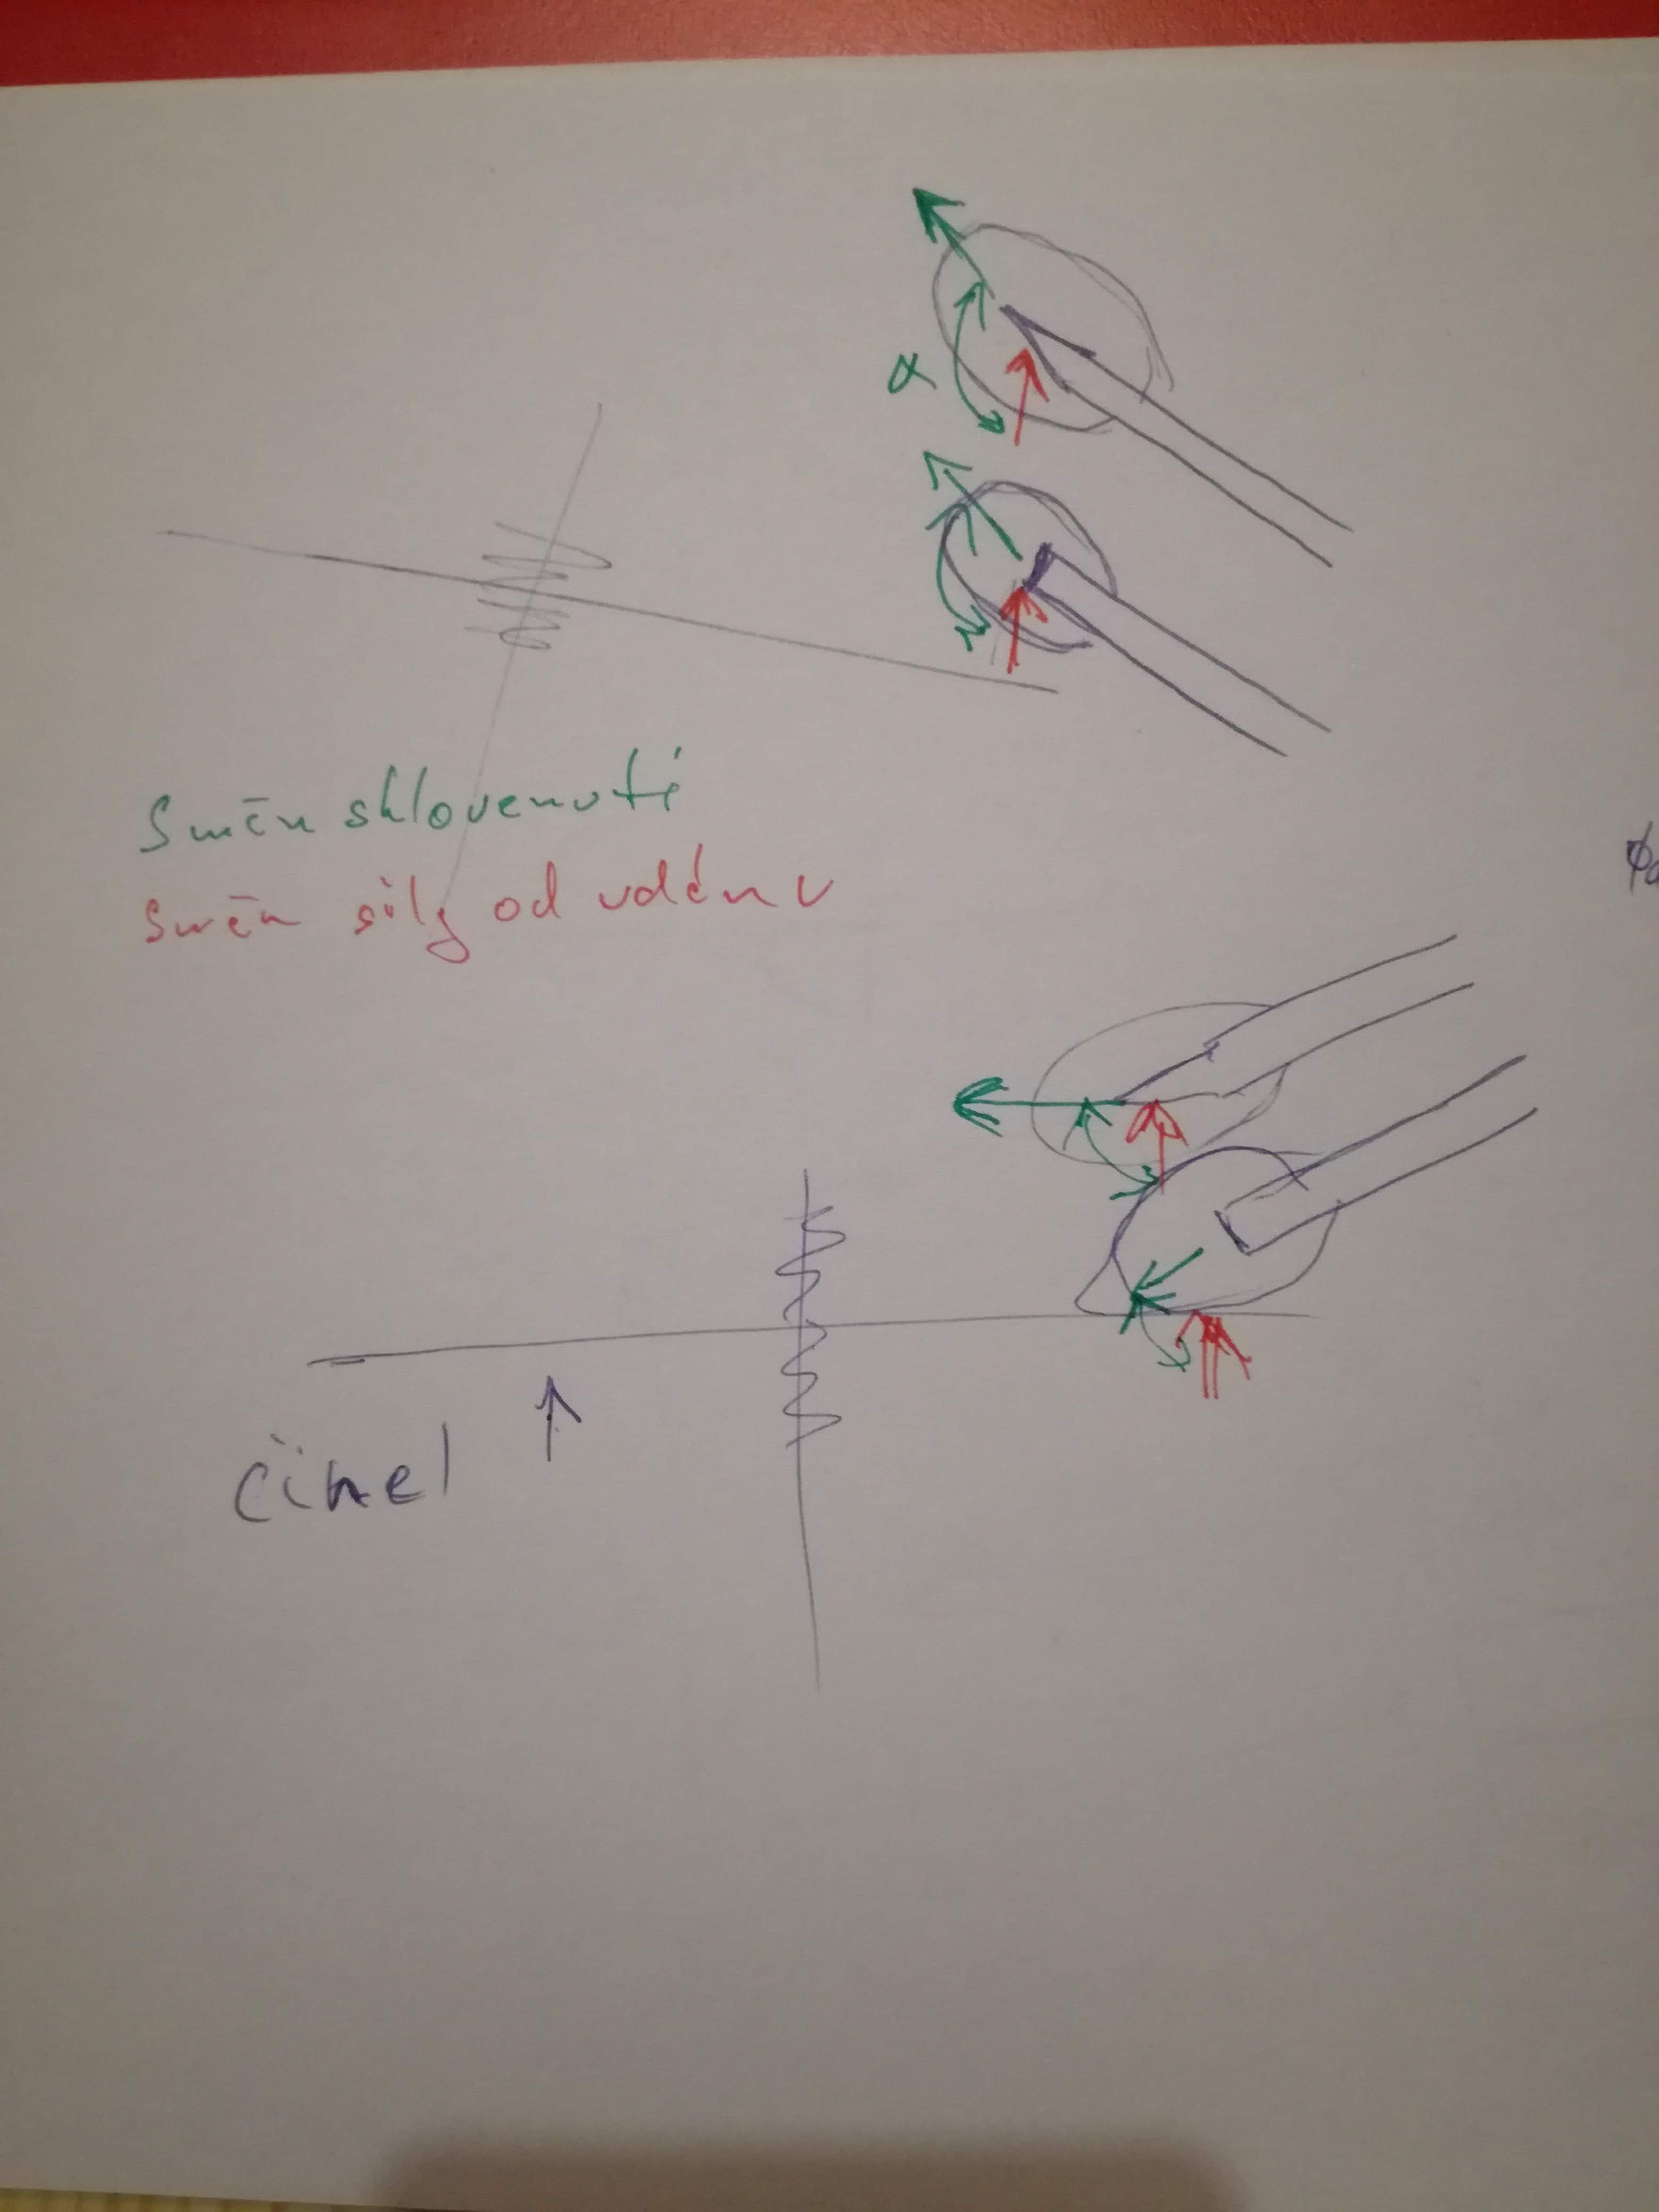 α
Směr sklouznutí
směr síly od úderu
činel